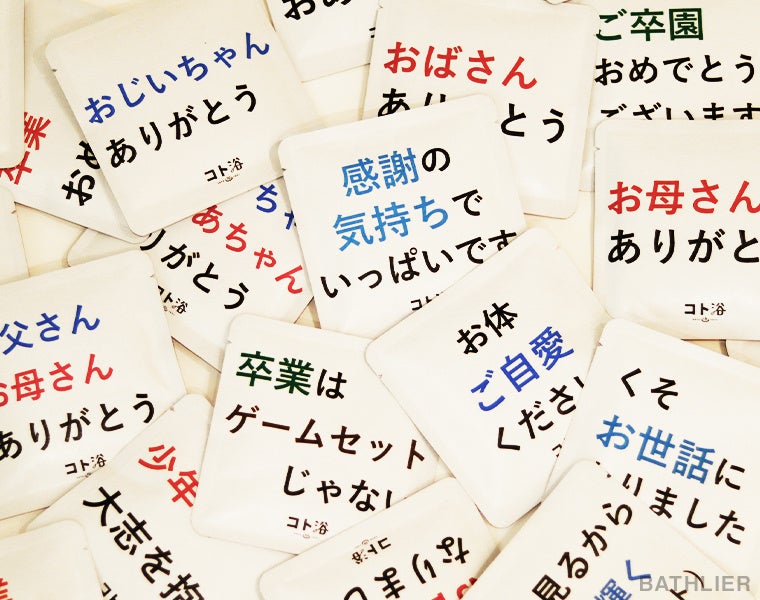 おめ
おじいちゃん
ありがとう
コト浴
おばさん
あり
とう
ご卒園
おめでとう
ございます
卒業
おめ
感謝の
気持ちで
いっぱいです
コト浴
お母さん
ありがと
コト浴
ちゃ
あちゃん
りがとう
コト浴
父さん
お母さん
ありがとう
コト浴
卒業は
ゲームセット
じゃない
コト浴
お体
ご自愛
くださ
くそ
お世話に
りました
少年
大志を抱
コト浴
なりまし
見るから
輝く
BATHLIER